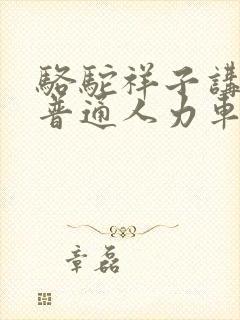 駱駝祥子講
普通人力車
章磊